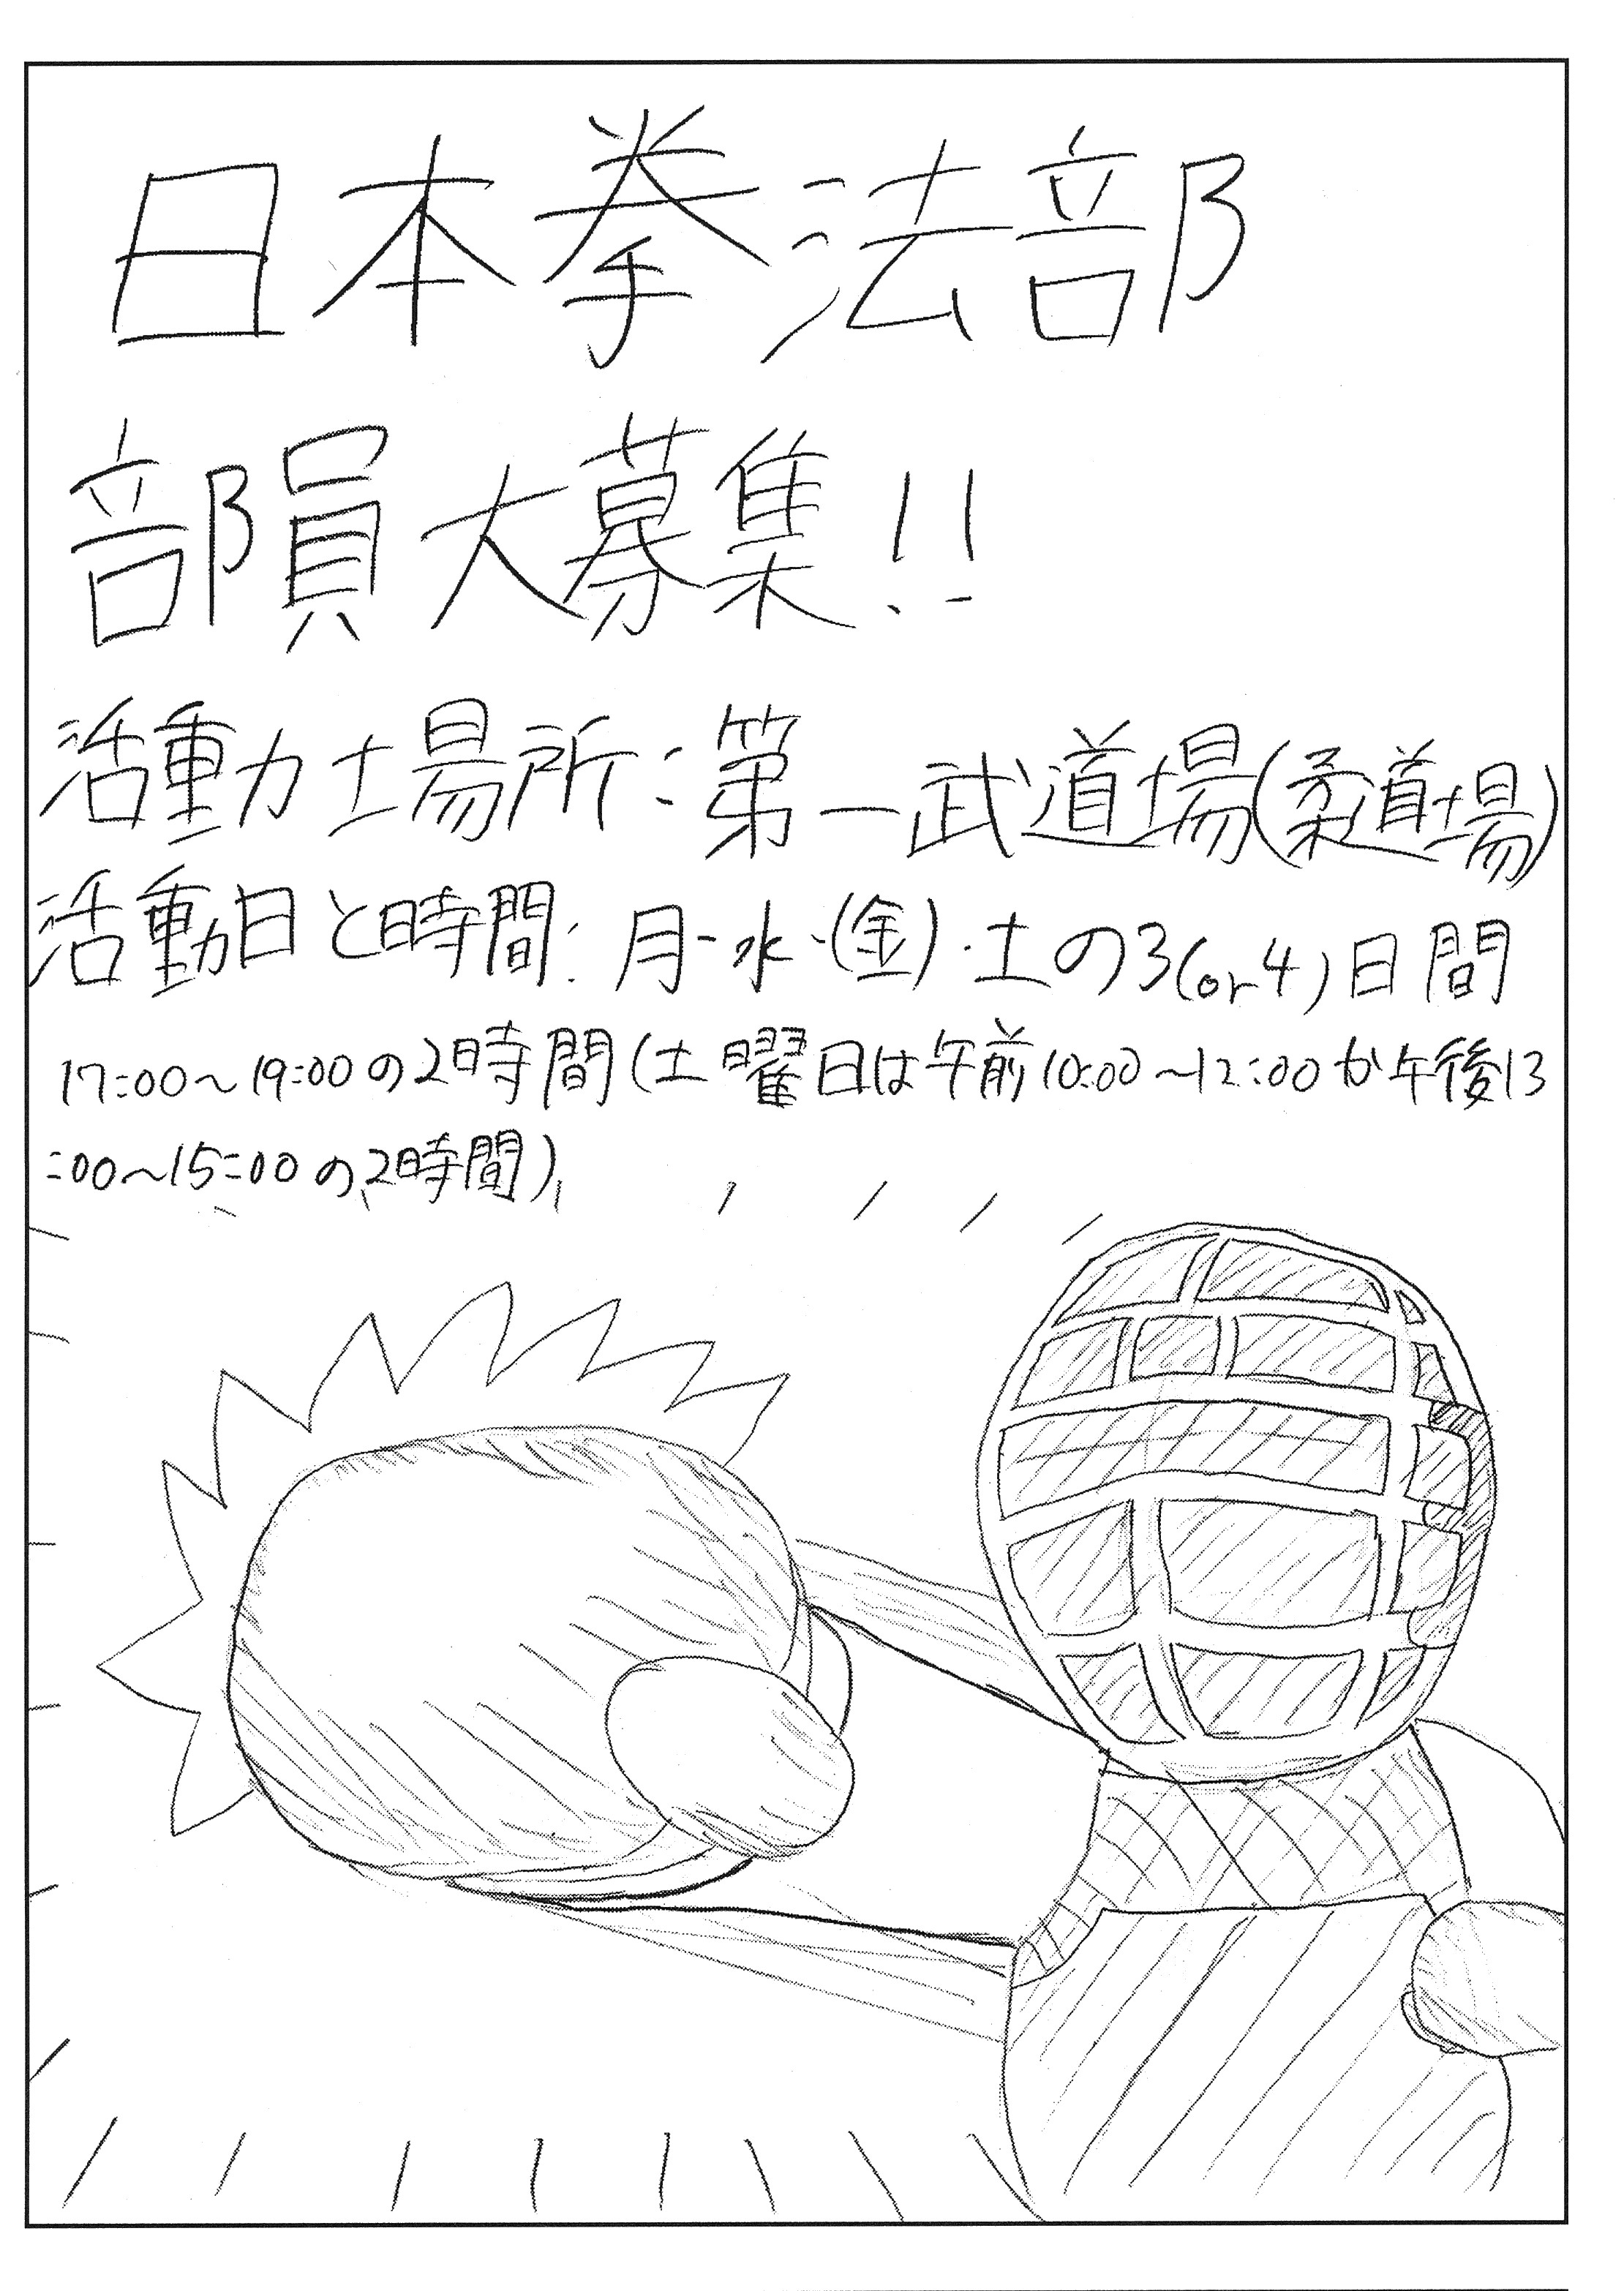 日本拳法部
部員大募集!!
活動場所:第一武道場(柔道場)
活動日と時間:月・水・(金)・土の3(or4)日間
17:00~19:00の2時間(土曜日は午前10:00~12:00か午後13
:00~15:00の2時間)